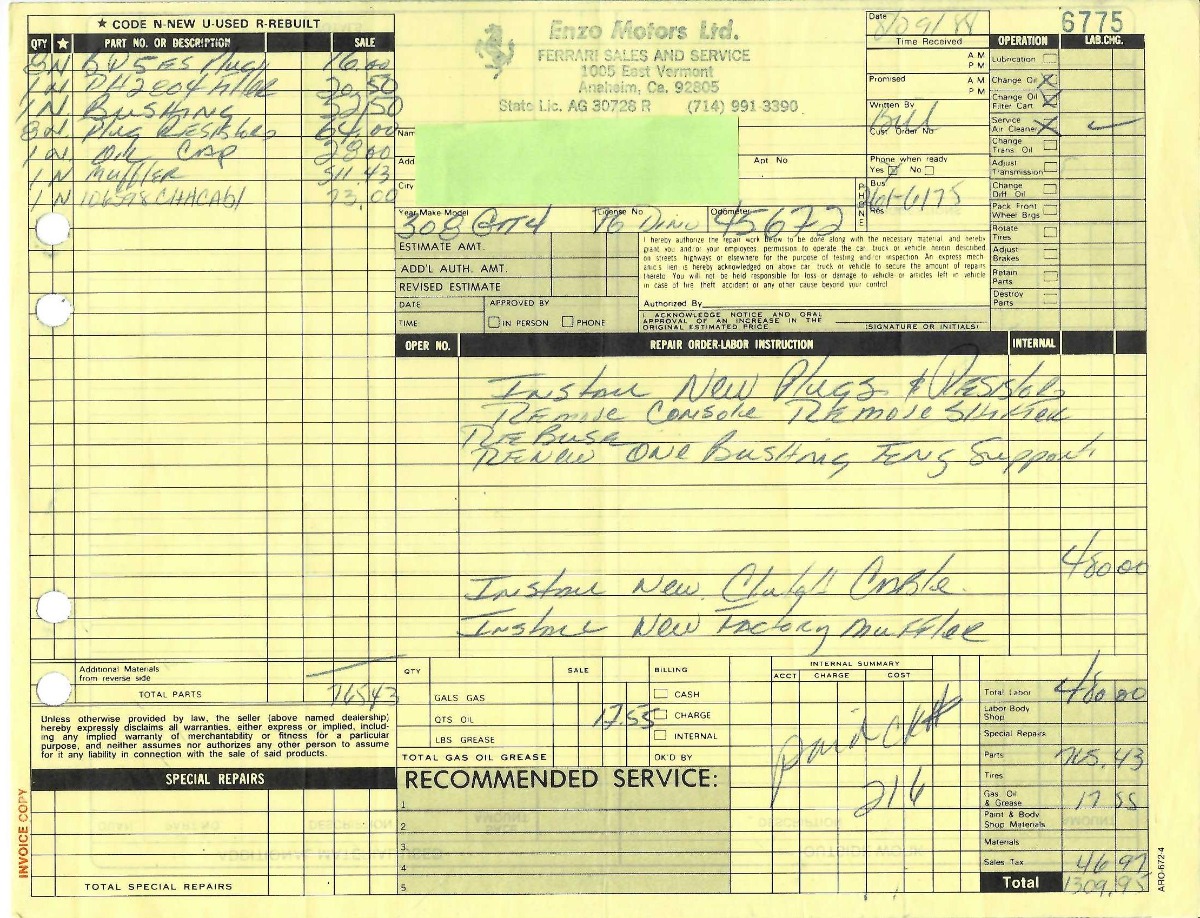 ★ CODE N-NEW U-USED R-REBUILT
QTY ★ PART NO. OR DESCRIPTION SALE
8 N BW5ES Plugs 16.00
1 N PH2804 Filter 20.50
1 N Bushing 52.50
8 N. Plug Resistors 64.00
1 N. Oil Cap 28.00
1 N Muffler 511.43
1 N 73.00
Additional Materials
from reverse side
TOTAL PARTS 765.43
Unless otherwise provided by law, the seller (above named dealership)
hereby expressly disclaims all warranties, either express or implied, includ-
ing any implied warranty of merchantability or fitness for a particular
purpose, and neither assumes nor authorizes any other person to assume
for it any liability in connection with the sale of said products.
SPECIAL REPAIRS
TOTAL SPECIAL REPAIRS
INVOICE COPY
Enzo Motors Ltd.
FERRARI SALES AND SERVICE
1005 East Vermont
Anaheim, Ca. 92805
State Lic. AG 30728 R (714) 991-3390
Nam
Add Apt No
City
Year Make Model License No Odometer
308 GT4 76 Dino 45672
Date
Time Received
A M
P M
Promised A M
P M
Written By
Bill
Cust Order No
Phone when ready
Yes No
PHONE
Bus 6175
Res
6775
OPERATION LAB.CHG.
Lubrication
Change Oil
Change Oil
Filter Cart
Service
Air Cleaner
Change
Trans. Oil
Adjust
Transmission
Change
Diff. Oil
Pack Front
Wheel Brgs
Rotate
Tires
Adjust
Brakes
Retain
Parts
Destroy
Parts
ESTIMATE AMT.
ADD'L AUTH. AMT.
REVISED ESTIMATE
DATE APPROVED BY
TIME IN PERSON PHONE
I hereby authorize the repair work below to be done along with the necessary material and hereby
grant you and/or your employees permission to operate the car, truck or vehicle herein described
on streets, highways or elsewhere for the purpose of testing and/or inspection. An express mech
anic's lien is hereby acknowledged on above car, truck or vehicle to secure the amount of repairs
thereto. You will not be held responsible for loss or damage to vehicle or articles left in vehicle
in case of fire, theft, accident or any other cause beyond your control
Authorized By
I ACKNOWLEDGE NOTICE AND ORAL
APPROVAL OF AN INCREASE IN THE
ORIGINAL ESTIMATED PRICE.
(SIGNATURE OR INITIALS)
OPER NO. REPAIR ORDER-LABOR INSTRUCTION INTERNAL
Install New Plugs & Resistors
Remove Console Remove Shifter
ReBush
Renew One Bushing Eng Support
480 00
Install New Clutch Cable
Install New Factory Muffler
QTY SALE
GALS GAS
QTS OIL 17.55
LBS GREASE
TOTAL GAS OIL GREASE
BILLING
CASH
CHARGE
INTERNAL
OK'D BY
INTERNAL SUMMARY
ACCT CHARGE COST
Paid ck#
216
RECOMMENDED SERVICE:
1
2
3
4
5
Total Labor 480 00
Labor Body
Shop
Special Repairs
Parts 765.43
Tires
Gas Oil
& Grease 17 55
Paint & Body
Shop Materials
Materials
Sales Tax 46 97
Total 1309.95
ARO-672-4